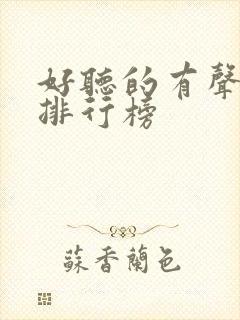 好聽的有聲
排行榜
蘇香蘭色